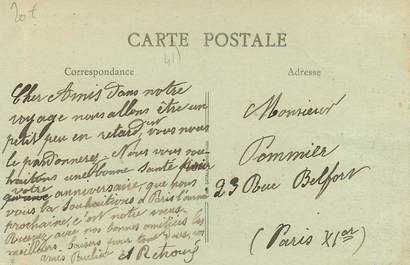 20 t
41)
CARTE POSTALE
Correspondance
Cher Amis dans notre
voyage nous allons être un
petit peu en retard,
vous nous
le pardonneres, Nous vous sou-
haitons une bonne Santé
votre anniversaire que nous
vous la souhaitions à Paris l'année
prochaine, c'est notre vœux
Recevez avec nos bonnes amitiées les
meilleurs baisers pour tous deux, vos
amis Pauline et
Adresse
Monsieur
Pommier
23 Rue Belfort
(Paris XIar)